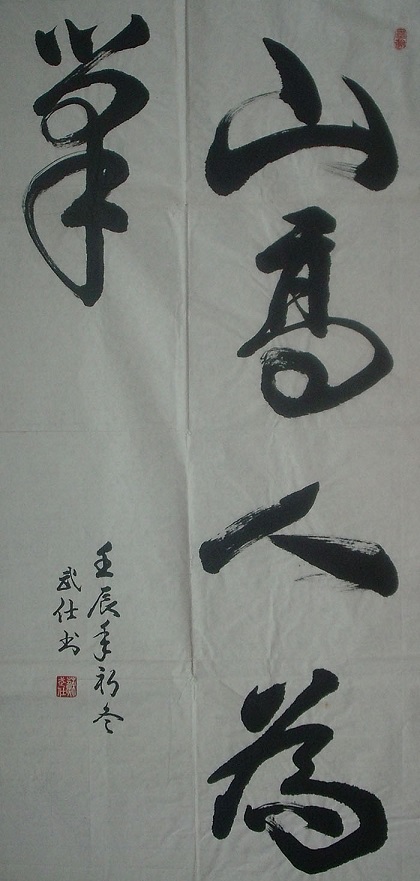 山高人為
峯
壬辰年初冬
武仕书